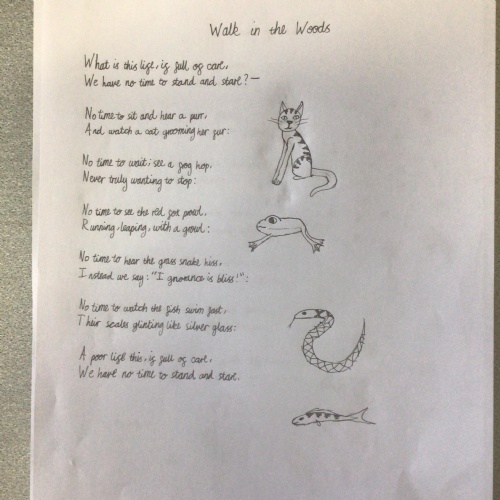 Walk in the Woods
What is this life, if full of care,
We have no time to stand and stare?—
No time to sit and hear a purr,
And watch a cat grooming her fur:
No time to wait; see a frog hop.
Never truly wanting to stop:
No time to see the red fox prowl,
Running, leaping, with a growl:
No time to hear the grass snake hiss,
Instead we say: "Ignorance is bliss!":
No time to watch the fish swim fast,
Their scales glinting like silver glass:
A poor life this, if full of care,
We have no time to stand and stare.